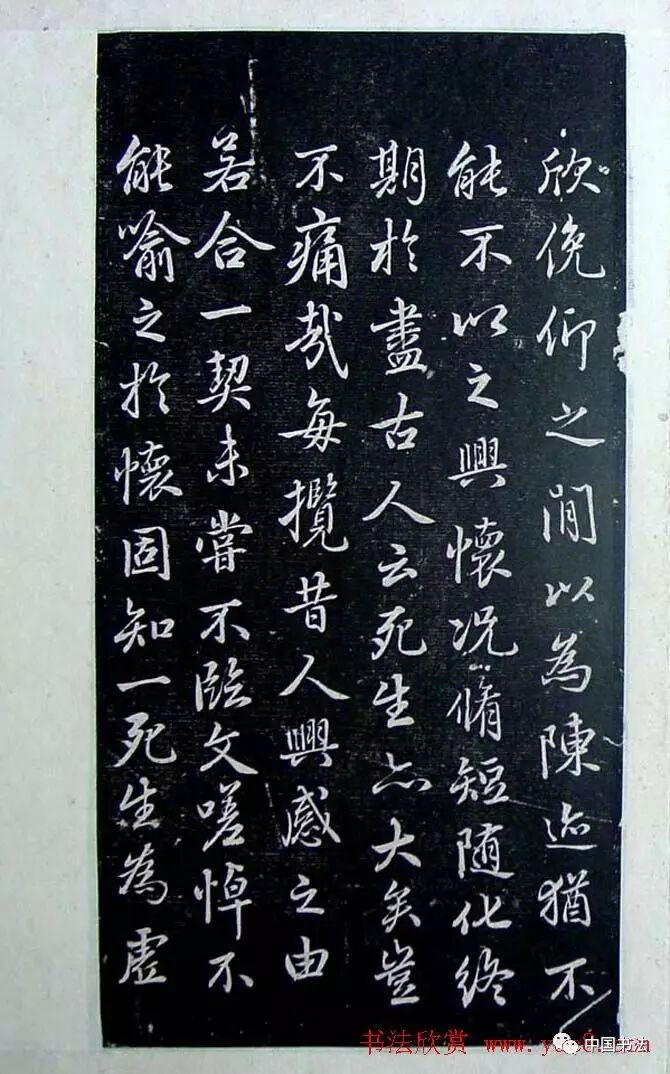 欣俛仰之間以為陳迹猶不
能不以之興懷況脩短随化終
期於盡古人云死生亦大矣豈
不痛哉每攬昔人興感之由
若合一契未嘗不臨文嗟悼不
能喻之於懷固知一死生為虛
书法欣赏
中国书法